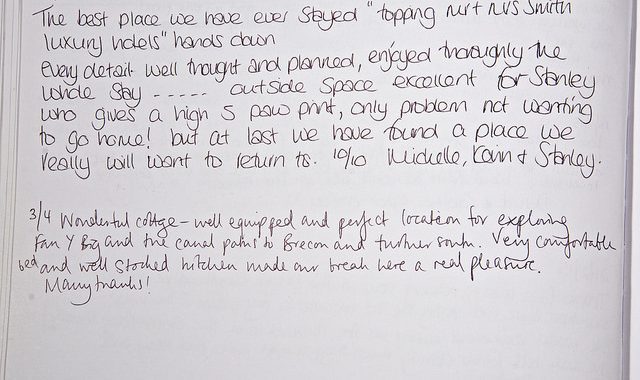 The best place we have ever stayed "topping Mr + Mrs Smith
luxury hotels" hands down
every detail well thought and planned, enjoyed thoroughly the
whole stay ----- outside space excellent for Stanley
who gives a high 5 paw print, only problem not wanting
to go home! but at last we have found a place we
really will want to return to. 10/10 Michelle, Kevin + Stanley.
3/4 Wonderful cottage - well equipped and perfect location for exploring
Fan Y Big and the canal paths to Brecon and further south. Very comfortable
bed and well stocked kitchen made our break here a real pleasure.
Many thanks!